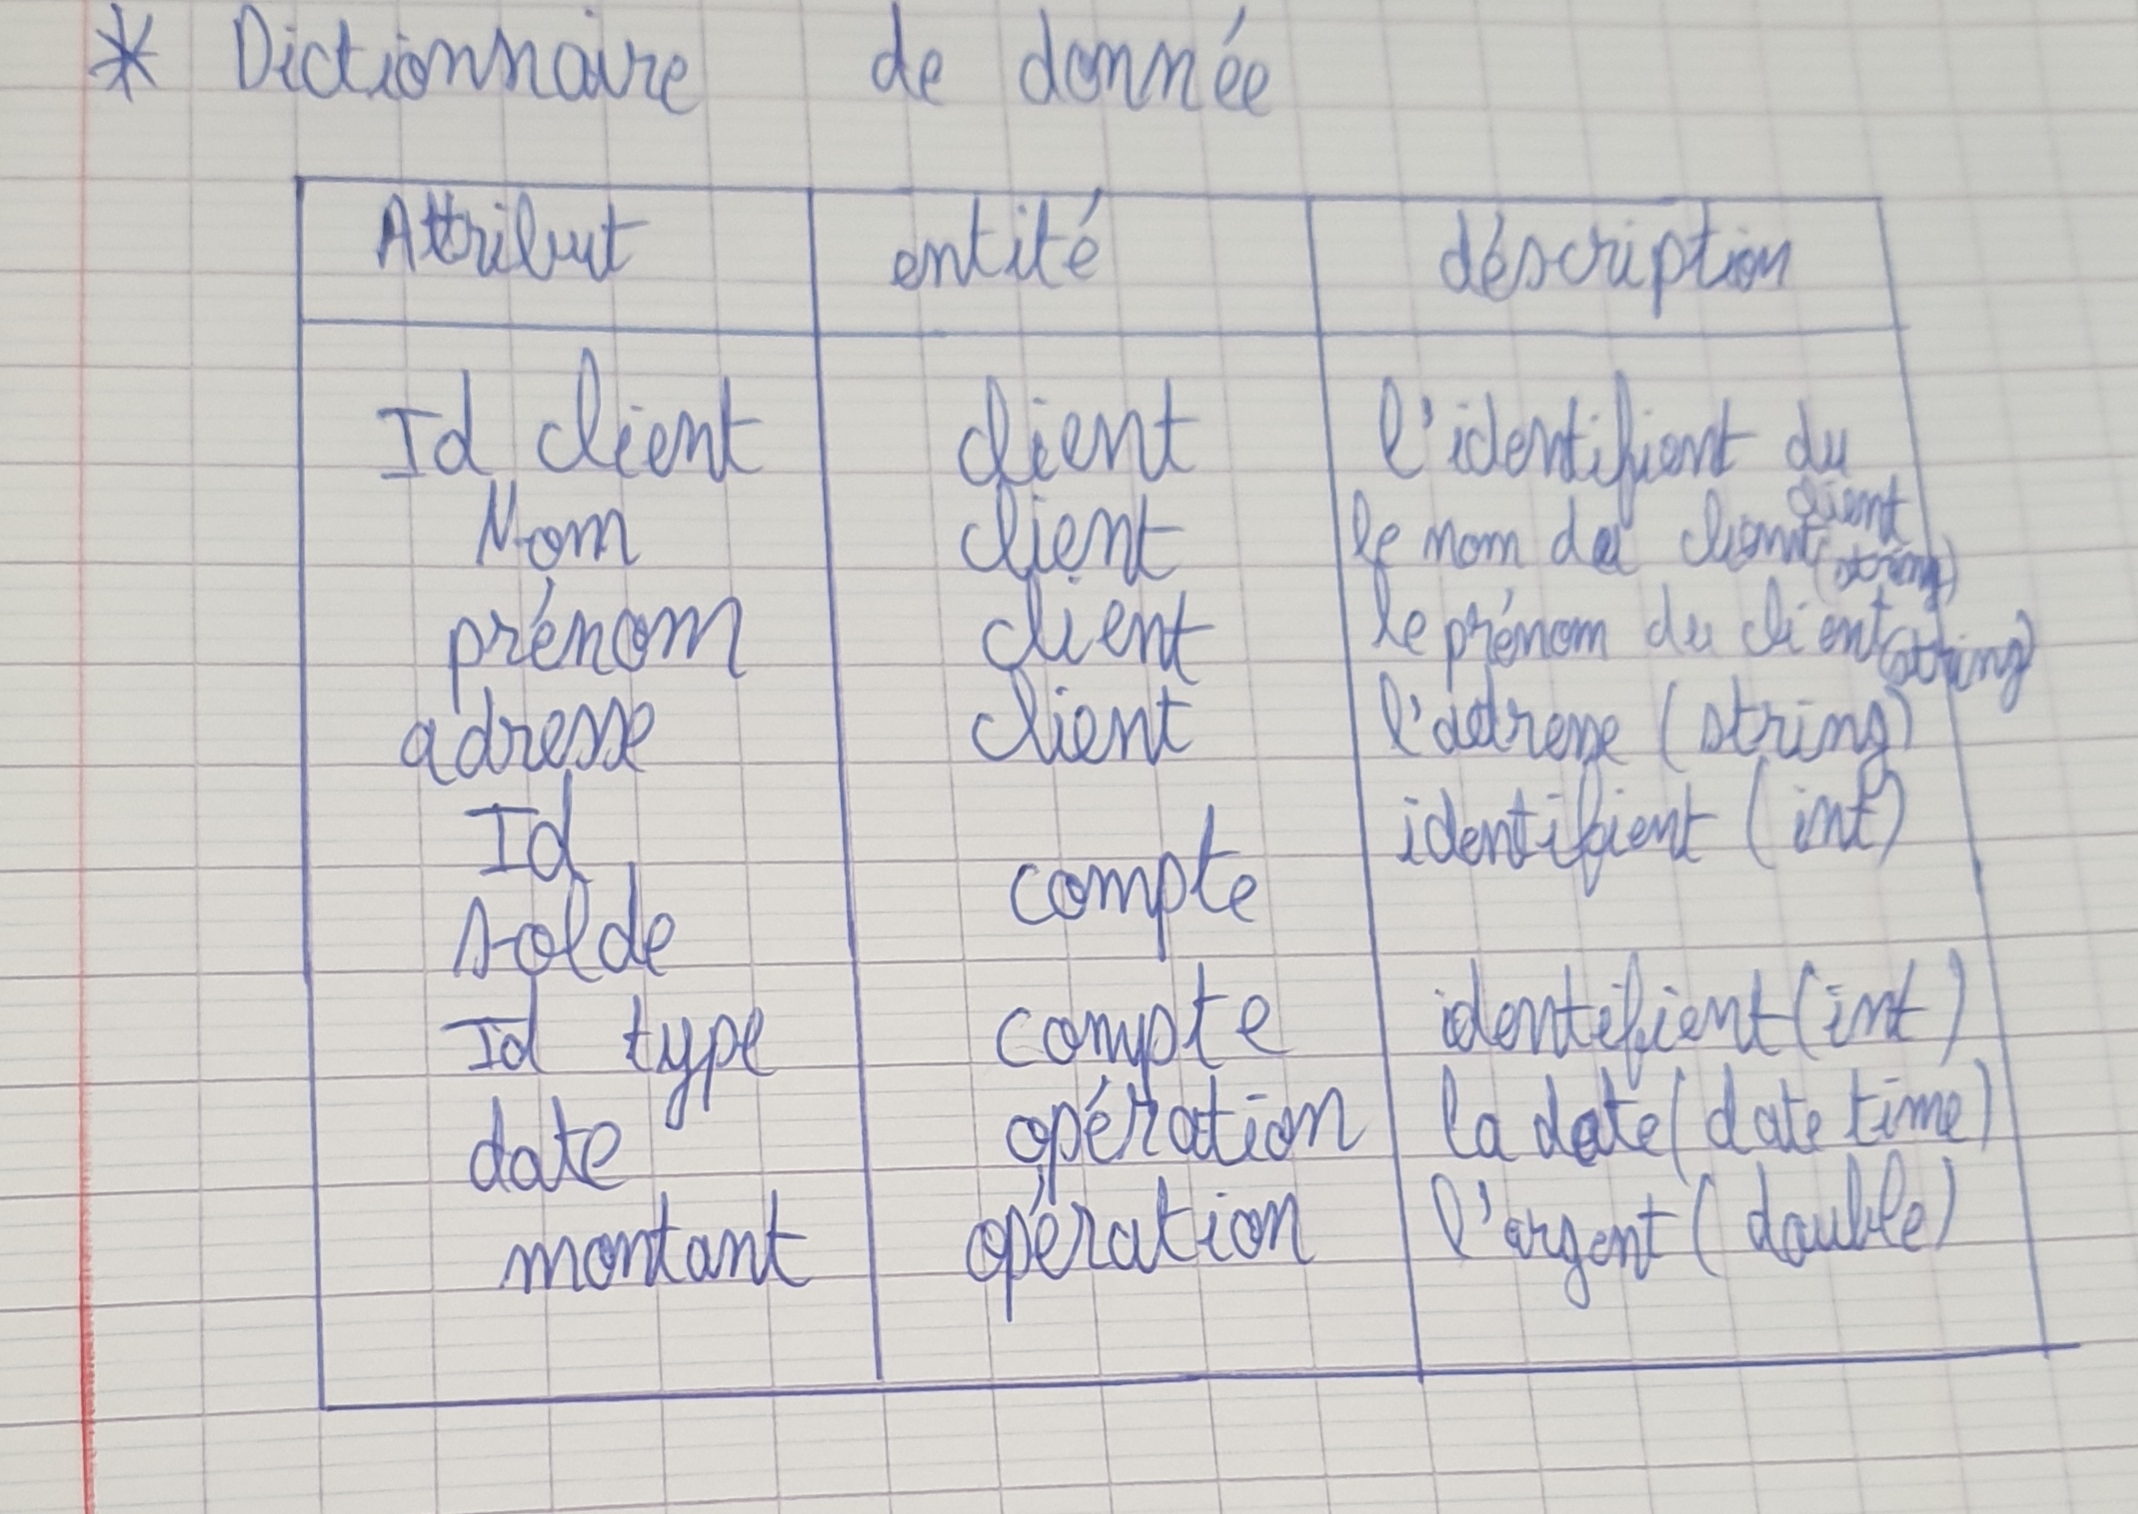 * Dictionnaire de donnée
Attribut entité déscription
Id client client l'identifient du client
Nom client le nom du client (string)
prénom client le prénom du client (string)
adresse client l'adresse (string)
Id identifient (int)
compte
solde
Id type compte identifient (int)
date opération la date (date time)
montant opération l'argent (double)